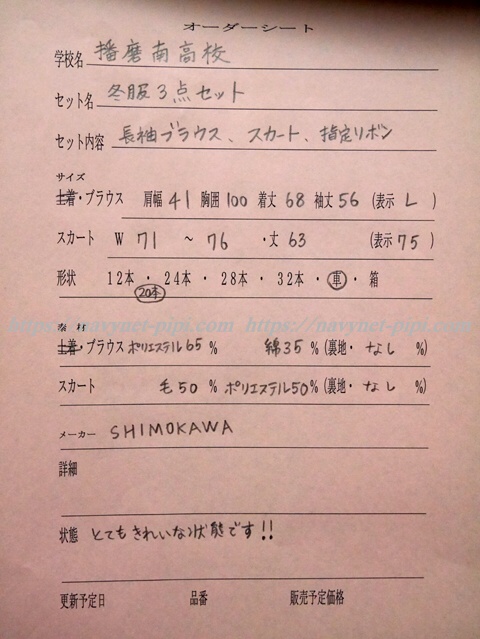 オーダーシート
学校名 播磨南高校
セット名 冬服3点セット
セット内容 長袖ブラウス、スカート、指定リボン
サイズ
上着・ブラウス 肩幅 41 胸囲 100 着丈 68 袖丈 56 (表示 L )
スカート W 71 ~ 76 ・丈 63 (表示 75 )
形状 12本 ・ 24本 ・ 28本 ・ 32本 ・ 車 ・ 箱
20本
https://navynet-pipi.com https://navynet-pipi.com
素材
上着・ブラウス ポリエステル 65 % 綿 35 % (裏地・ なし %)
スカート 毛 50 % ポリエステル 50 % (裏地・ なし %)
メーカー SHIMOKAWA
詳細
状態 とてもきれいな状態です!!
更新予定日 品番 販売予定価格